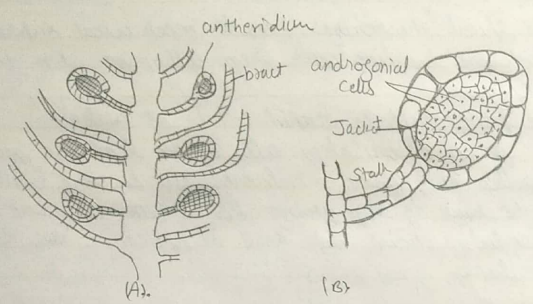 antheridium
bract
androgonial
cells
Jacket
Stalk
(A).
(B).